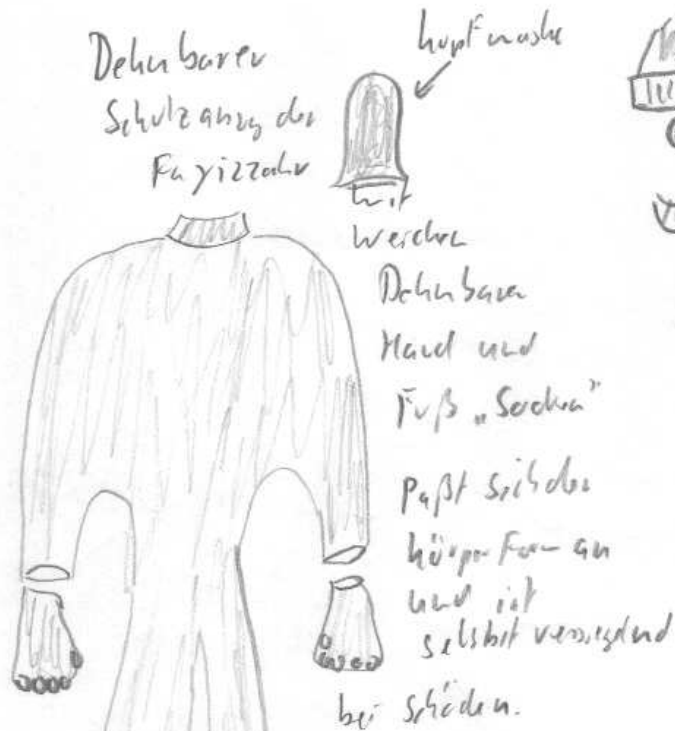 Dehnbarer
Schutzanzug der
Fayizzahr
Kopfmaske
mit
weichen
Dehnbaren
Hand und
Fuß „Socken"
Paßt sich der
Körperform an
und ist
selsbst versiegelnd
bei Schäden.